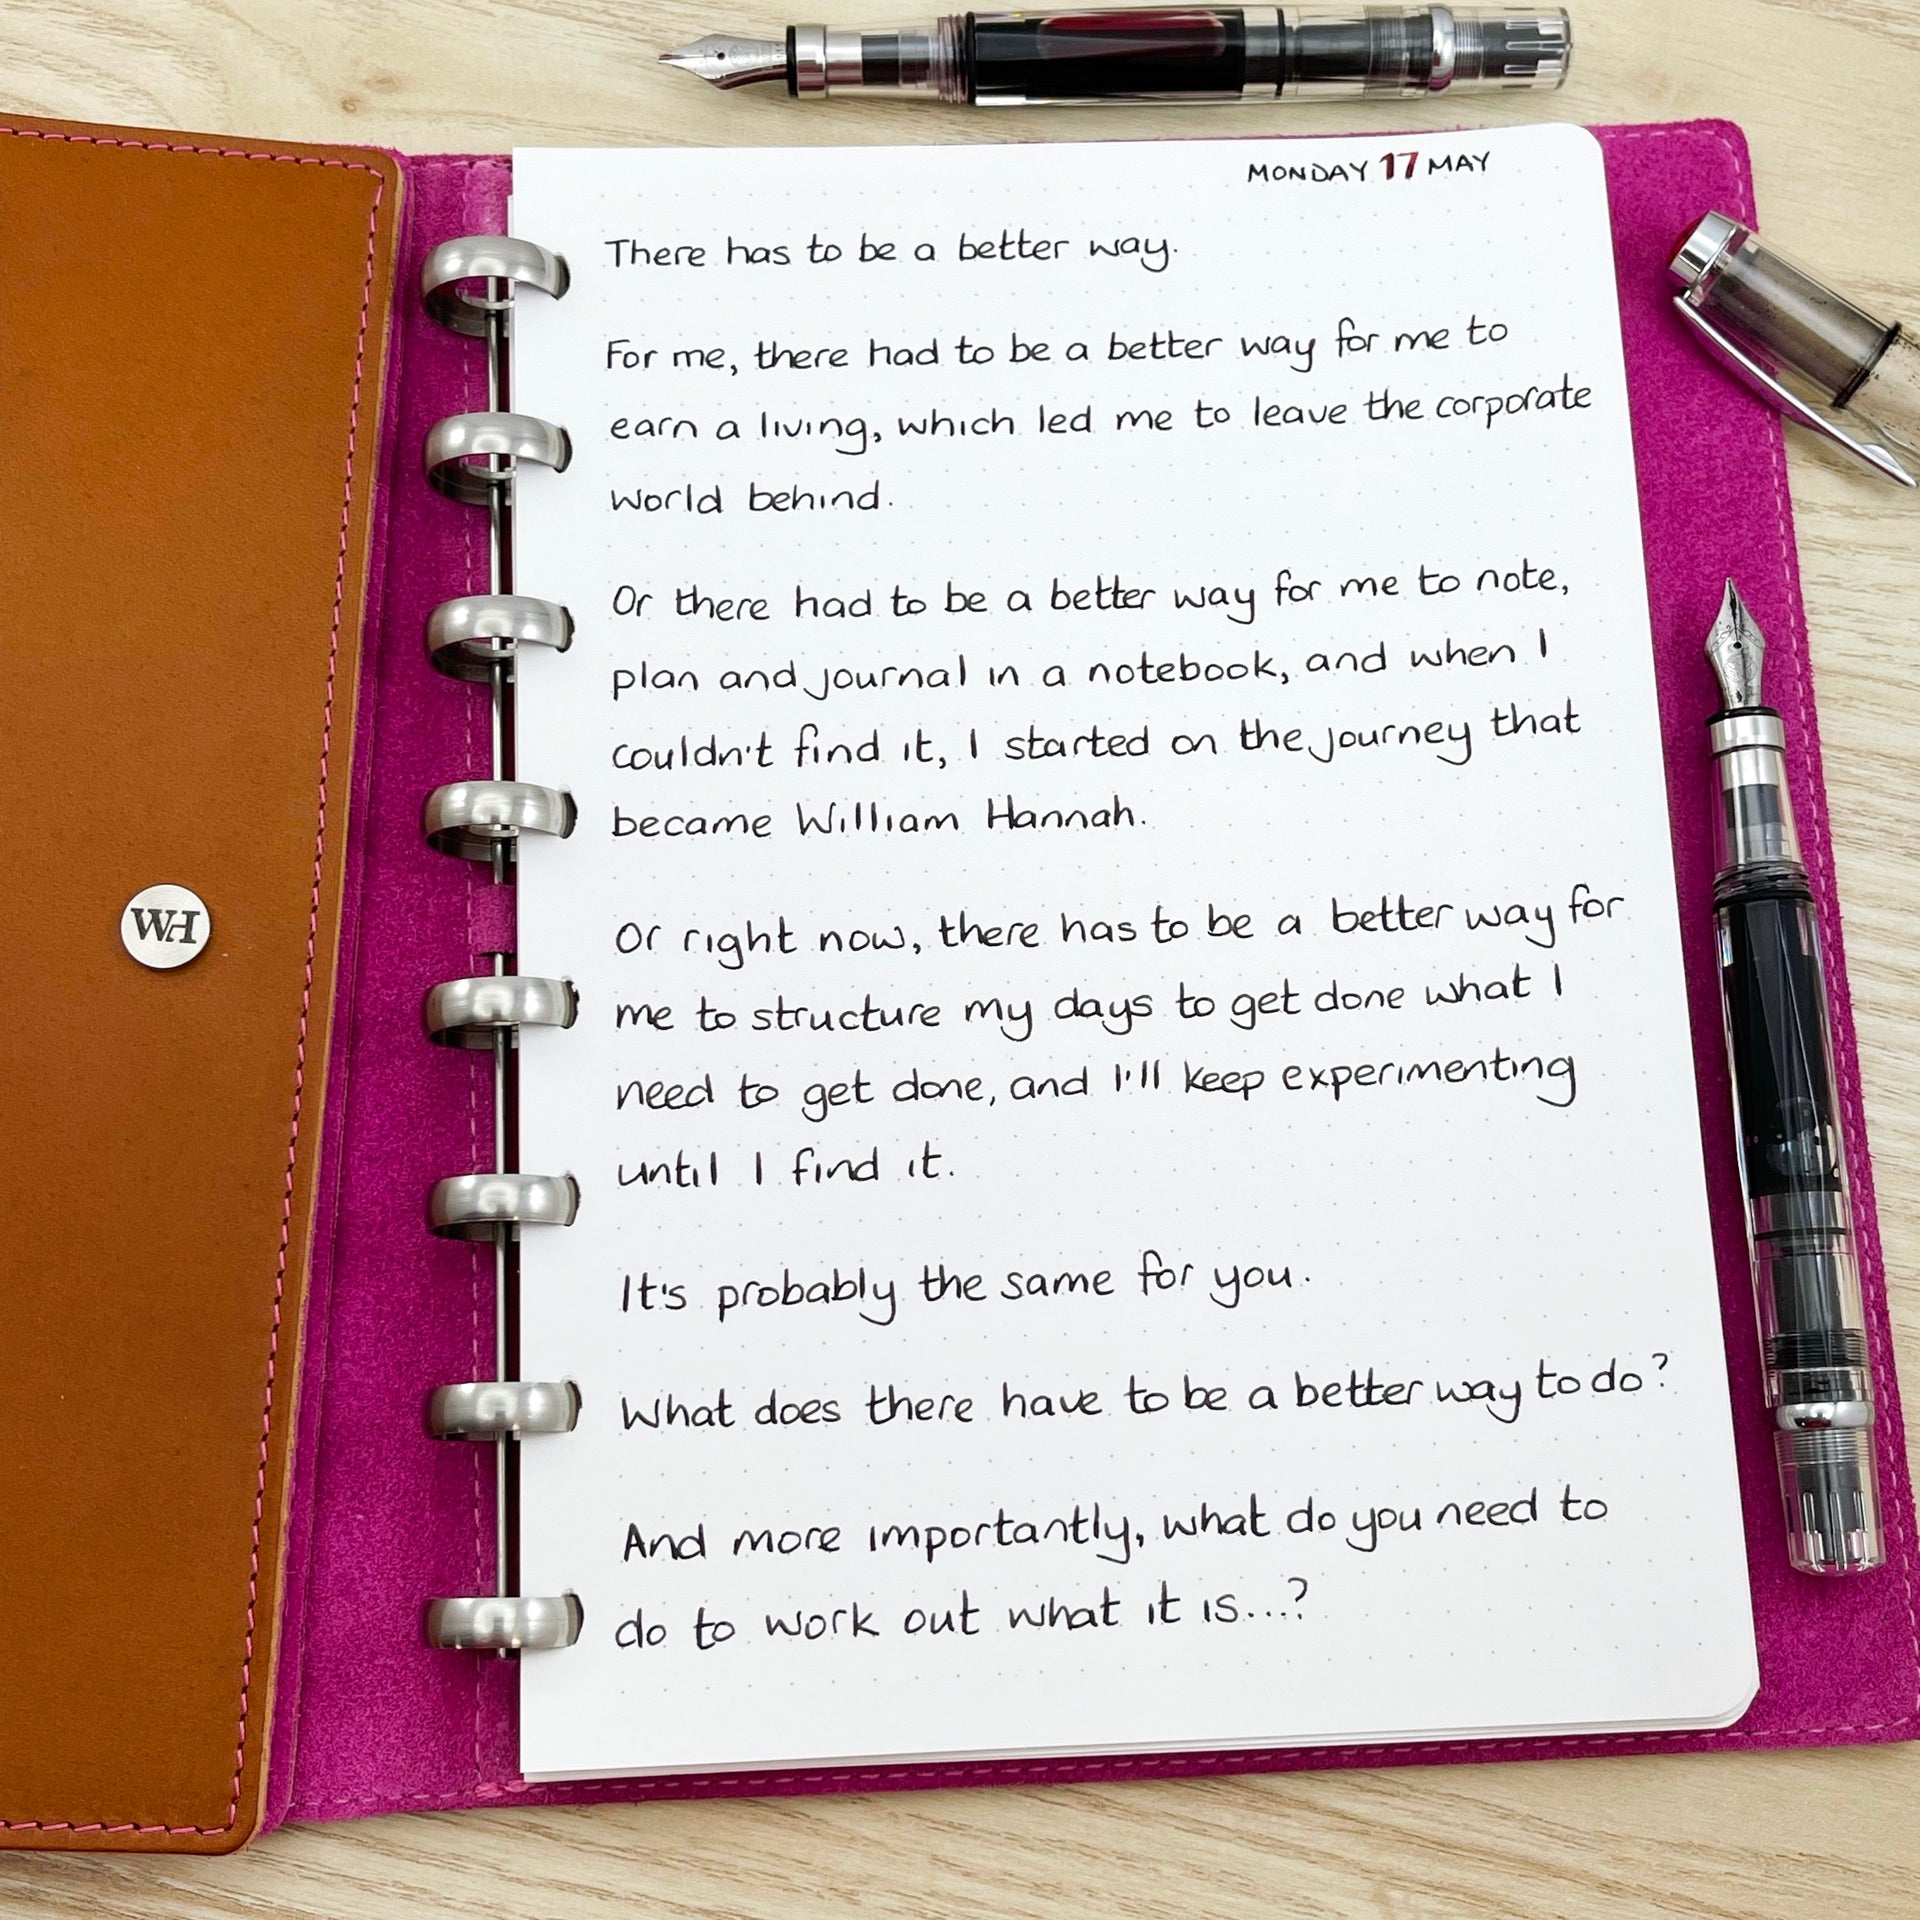 MONDAY 17 MAY
There has to be a better way.
For me, there had to be a better way for me to
earn a living, which led me to leave the corporate
world behind.
Or there had to be a better way for me to note,
plan and journal in a notebook, and when I
couldn't find it, I started on the journey that
became William Hannah.
Or right now, there has to be a better way for
me to structure my days to get done what I
need to get done, and I'll keep experimenting
until I find it.
It's probably the same for you.
What does there have to be a better way to do?
And more importantly, what do you need to
do to work out what it is...?
WH